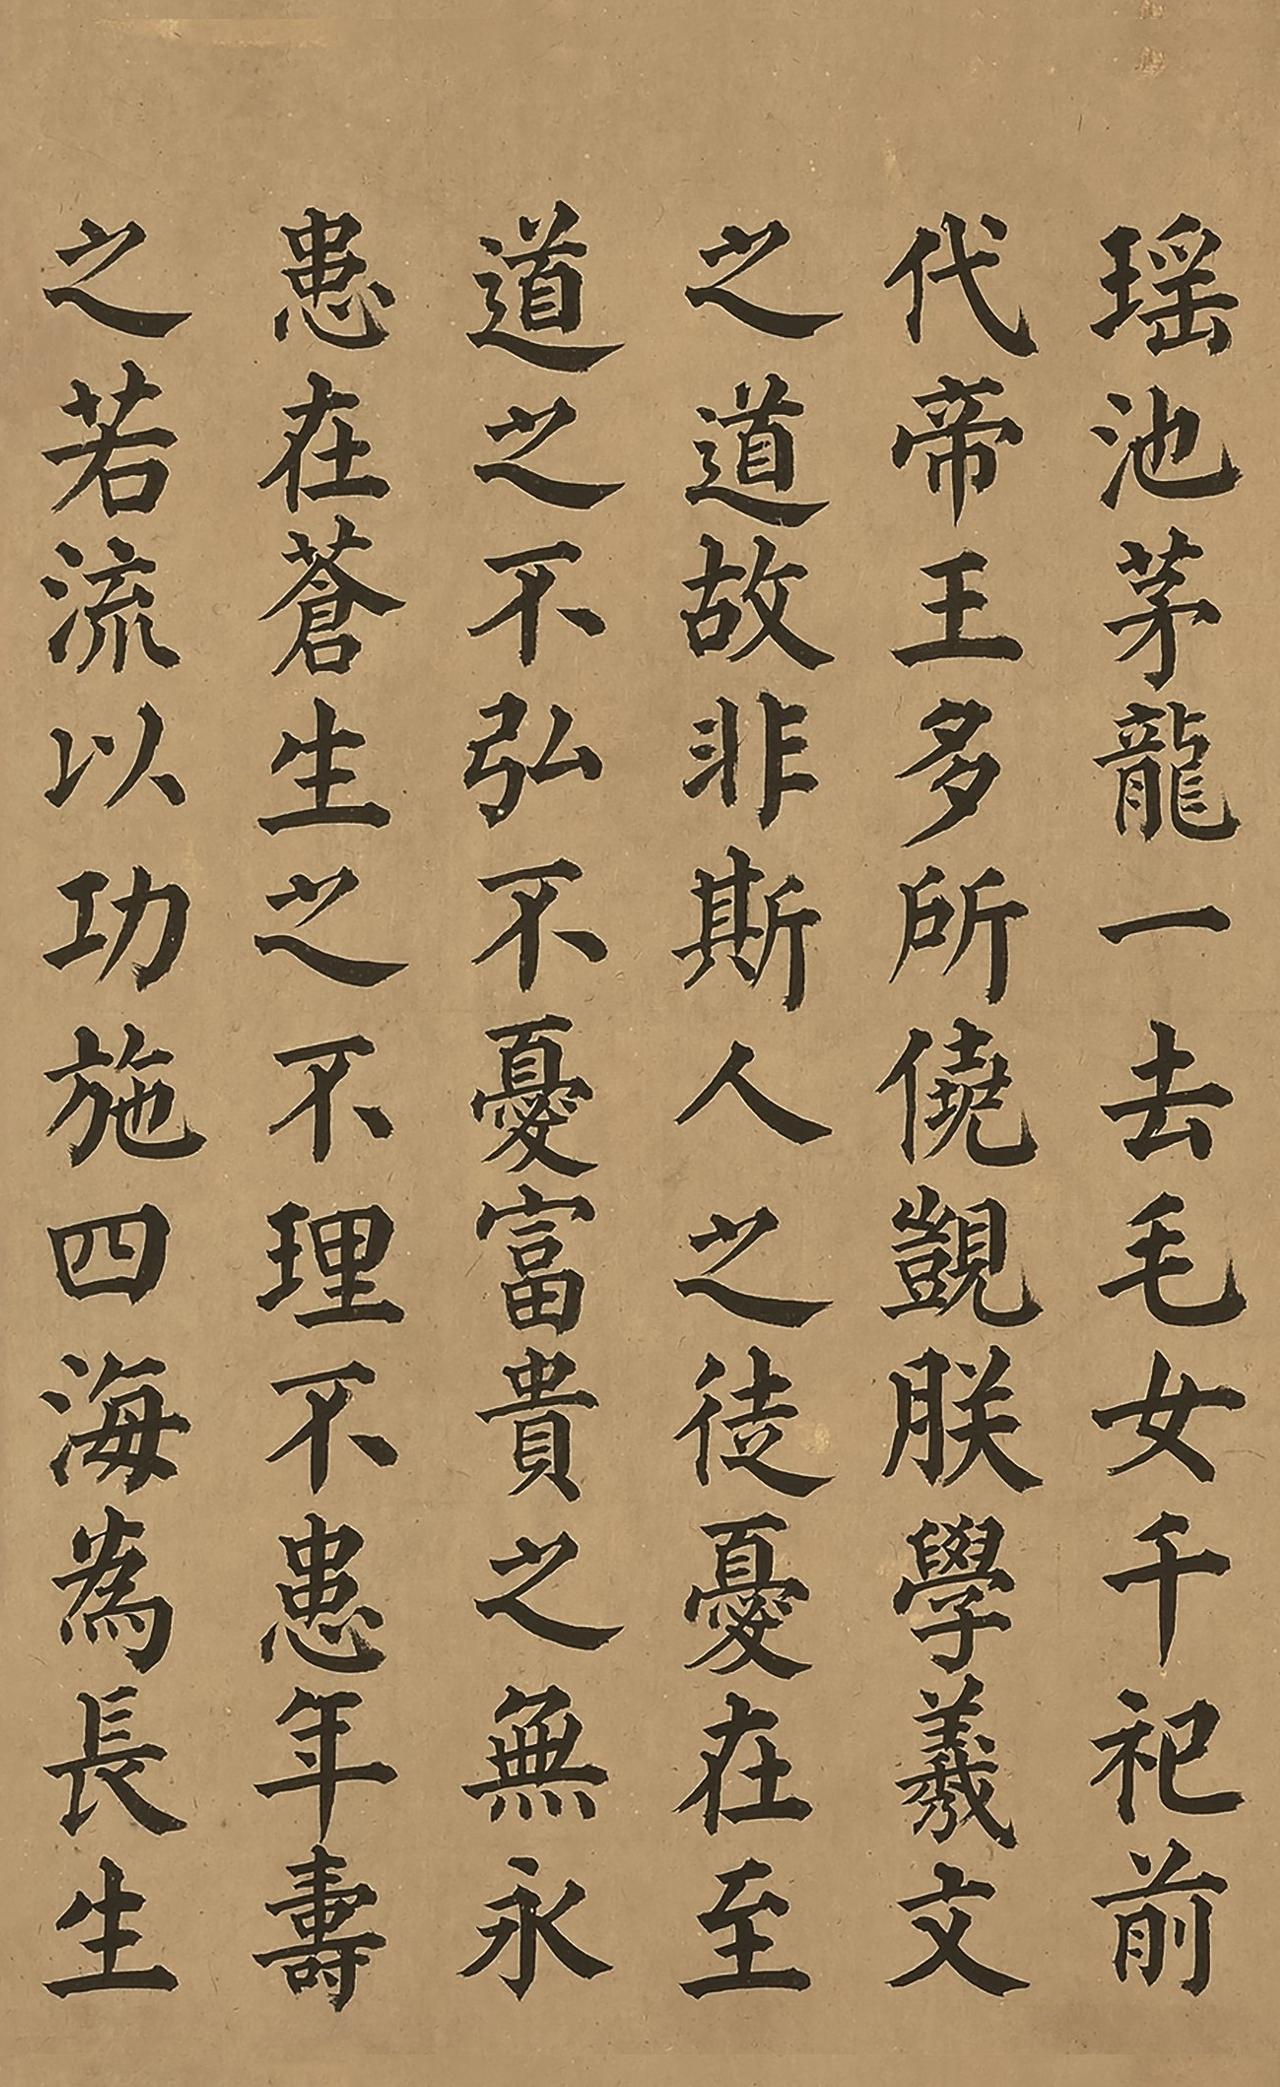 瑶池茅龍一去毛女千祀前
代帝王多所僥覬朕學羲文
之道故非斯人之徒憂在至
道之不弘不憂富貴之無永
患在蒼生之不理不患年壽
之若流以功施四海為長生